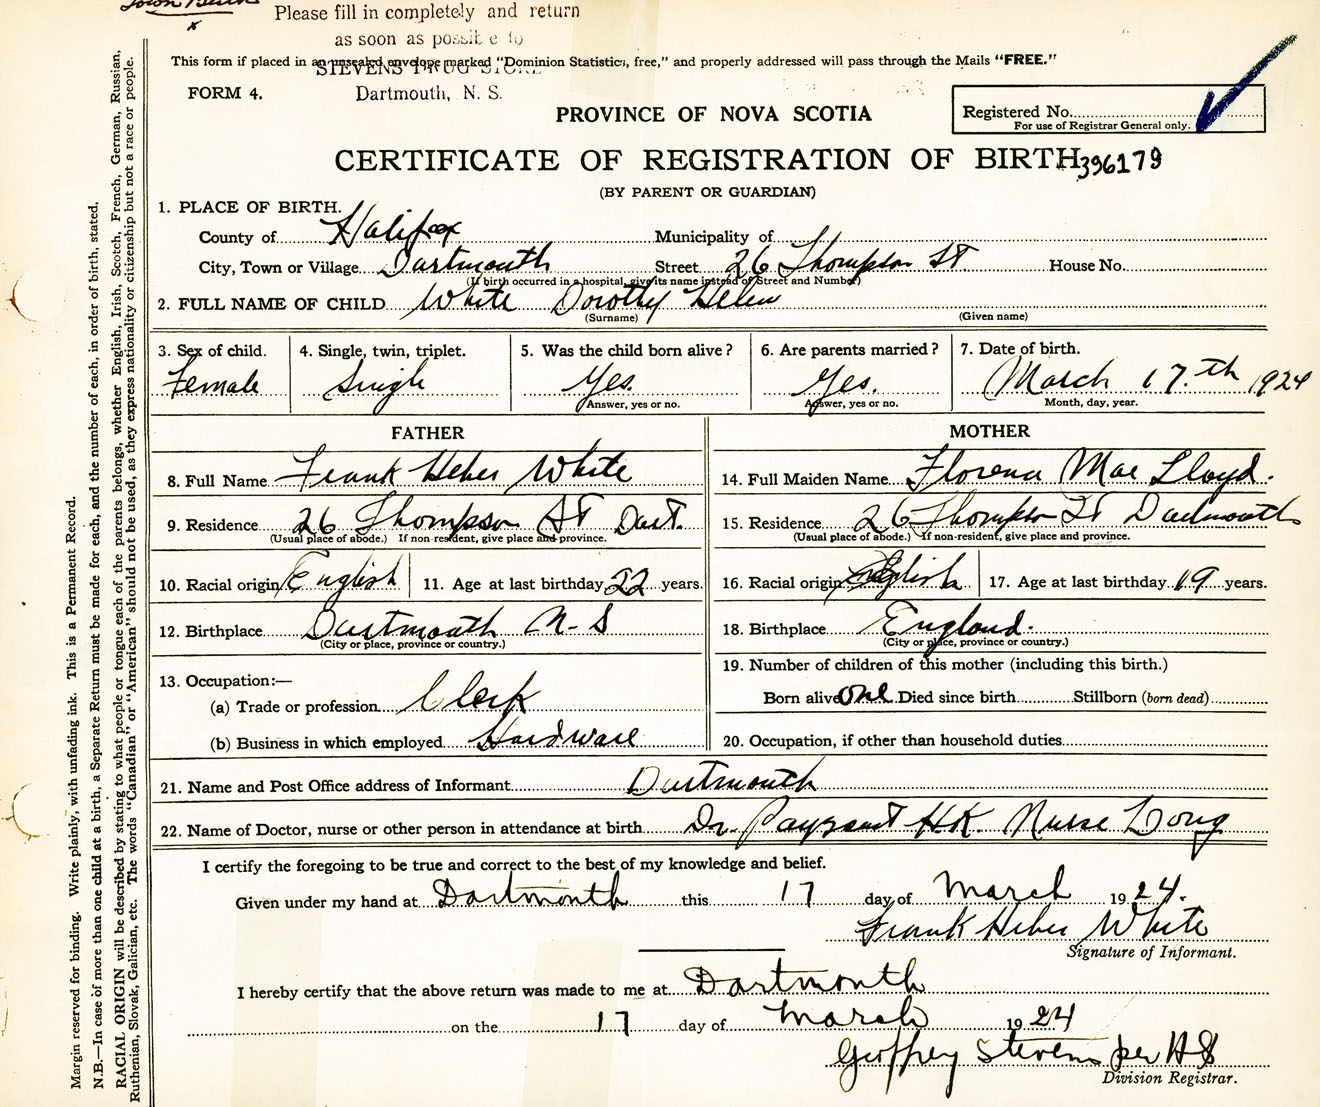 Town Berth
x
Please fill in completely and return
as soon as possible to
STEVENS DRUG STORE
Dartmouth, N. S.
This form if placed in an unsealed envelope marked "Dominion Statistics, free," and properly addressed will pass through the Mails "FREE."
FORM 4.
PROVINCE OF NOVA SCOTIA
Registered No.
For use of Registrar General only.
CERTIFICATE OF REGISTRATION OF BIRTH 396179
(BY PARENT OR GUARDIAN)
1. PLACE OF BIRTH.
County of Halifax Municipality of
City, Town or Village Dartmouth Street 26 Thompson St House No.
(If birth occurred in a hospital, give its name instead of Street and Number)
2. FULL NAME OF CHILD White Dorothy Helen
(Surname) (Given name)
3. Sex of child. 4. Single, twin, triplet. 5. Was the child born alive? 6. Are parents married? 7. Date of birth.
Female Single Yes. Yes. March 17.th 1924
Answer, yes or no. Answer, yes or no. Month, day, year.
FATHER MOTHER
8. Full Name Frank Heber White 14. Full Maiden Name Florena Mae Lloyd.
9. Residence 26 Thompson St Dart. 15. Residence 26 Thompson St Dartmouth
(Usual place of abode.) If non-resident, give place and province. (Usual place of abode.) If non-resident, give place and province.
10. Racial origin English 11. Age at last birthday 22 years. 16. Racial origin English 17. Age at last birthday 19 years.
12. Birthplace Dartmouth N-S 18. Birthplace England.
(City or place, province or country.) (City or place, province or country.)
13. Occupation:— 19. Number of children of this mother (including this birth.)
(a) Trade or profession Clerk Born alive one Died since birth Stillborn (born dead)
(b) Business in which employed Hardware 20. Occupation, if other than household duties
21. Name and Post Office address of Informant Dartmouth
22. Name of Doctor, nurse or other person in attendance at birth Dr. Payzant H.K. Nurse Long
I certify the foregoing to be true and correct to the best of my knowledge and belief.
Given under my hand at Dartmouth this 17 day of March 1924.
Frank Heber White
Signature of Informant.
I hereby certify that the above return was made to me at Dartmouth
on the 17 day of March 1924
Geoffrey Stevens per HS
Division Registrar.
Margin reserved for binding. Write plainly, with unfading ink. This is a Permanent Record.
N.B.—In case of more than one child at a birth, a Separate Return must be made for each, and the number of each, in order of birth, stated.
RACIAL ORIGIN will be described by stating to what people or tongue each of the parents belongs, whether English, Irish, Scotch, French, German, Russian,
Ruthenian, Slovak, Galician, etc. The words "Canadian" or "American" should not be used, as they express nationality or citizenship but not a race or people.